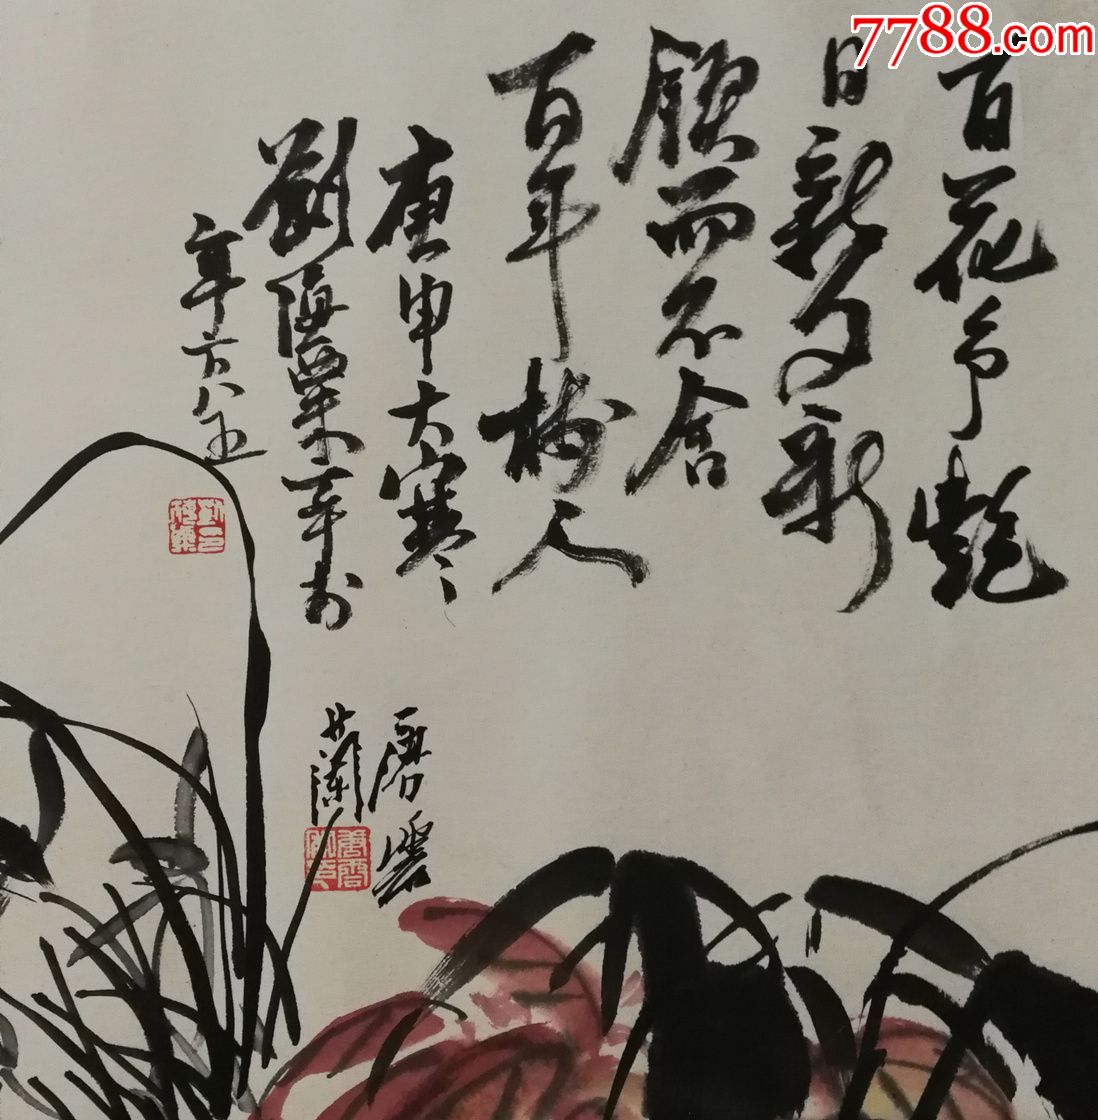 7788.com
百花爭艷
日新又新
鍥而不舍
百年樹人
庚申大寒
劉海粟率書
年方八五
唐雲
蘭